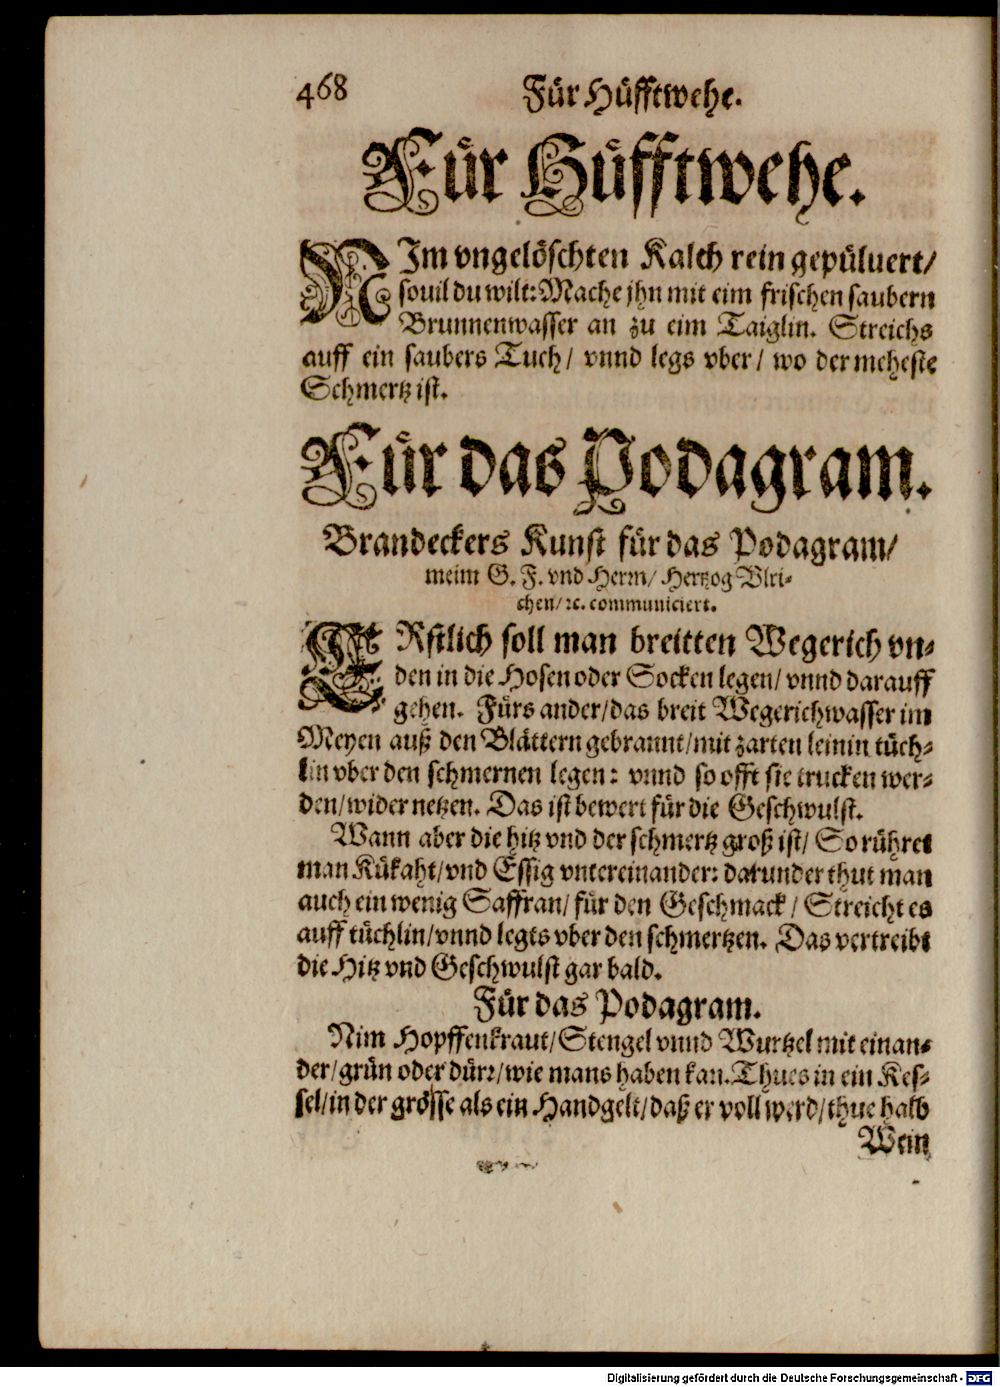 468 Für Hüfftwehe.
Für Hüfftwehe.
NIm vngelöschten Kalch rein gepüluert/
souil du wilt: Mache jhn mit eim frischen saubern
Brunnenwasser an zu eim Taiglin. Streichs
auff ein saubers Tuch/ vnnd legs vber/ wo der meheste
Schmertz ist.
Für das Podagram.
Brandeckers Kunst für das Podagram/
meim G. F. vnd Herrn/ Hertzog Vlri-
chen/ ꝛc. communiciert.
ERstlich soll man breitten Wegerich vn-
den in die Hosen oder Socken legen/ vnnd darauff
gehen. Fürs ander/ das breit Wegerichwasser im
Meyen auß den Blättern gebrannt/ mit zarten leinin tüch-
lin vber den schmertzen legen: vnnd so offt sie trucken wer-
den/ wider netzen. Das ist bewert für die Geschwulst.
Wann aber die hitz vnd der schmertz groß ist/ So rühret
man Kükaht/ vnd Essig vntereinander: darunder thut man
auch ein wenig Saffran/ für den Geschmack/ Streicht es
auff tüchlin/ vnnd legts vber den schmertzen. Das vertreibt
die Hitz vnd Geschwulst gar bald.
Für das Podagram.
Nim Hopffenkraut/ Stengel vnnd Wurtzel mit einan-
der/ grün oder dürr/ wie mans haben kan. Thues in ein Kes-
sel/ in der grösse als ein Handgelt/ daß er voll werd/ thue halb
Wein
Digitalisierung gefördert durch die Deutsche Forschungsgemeinschaft - DFG